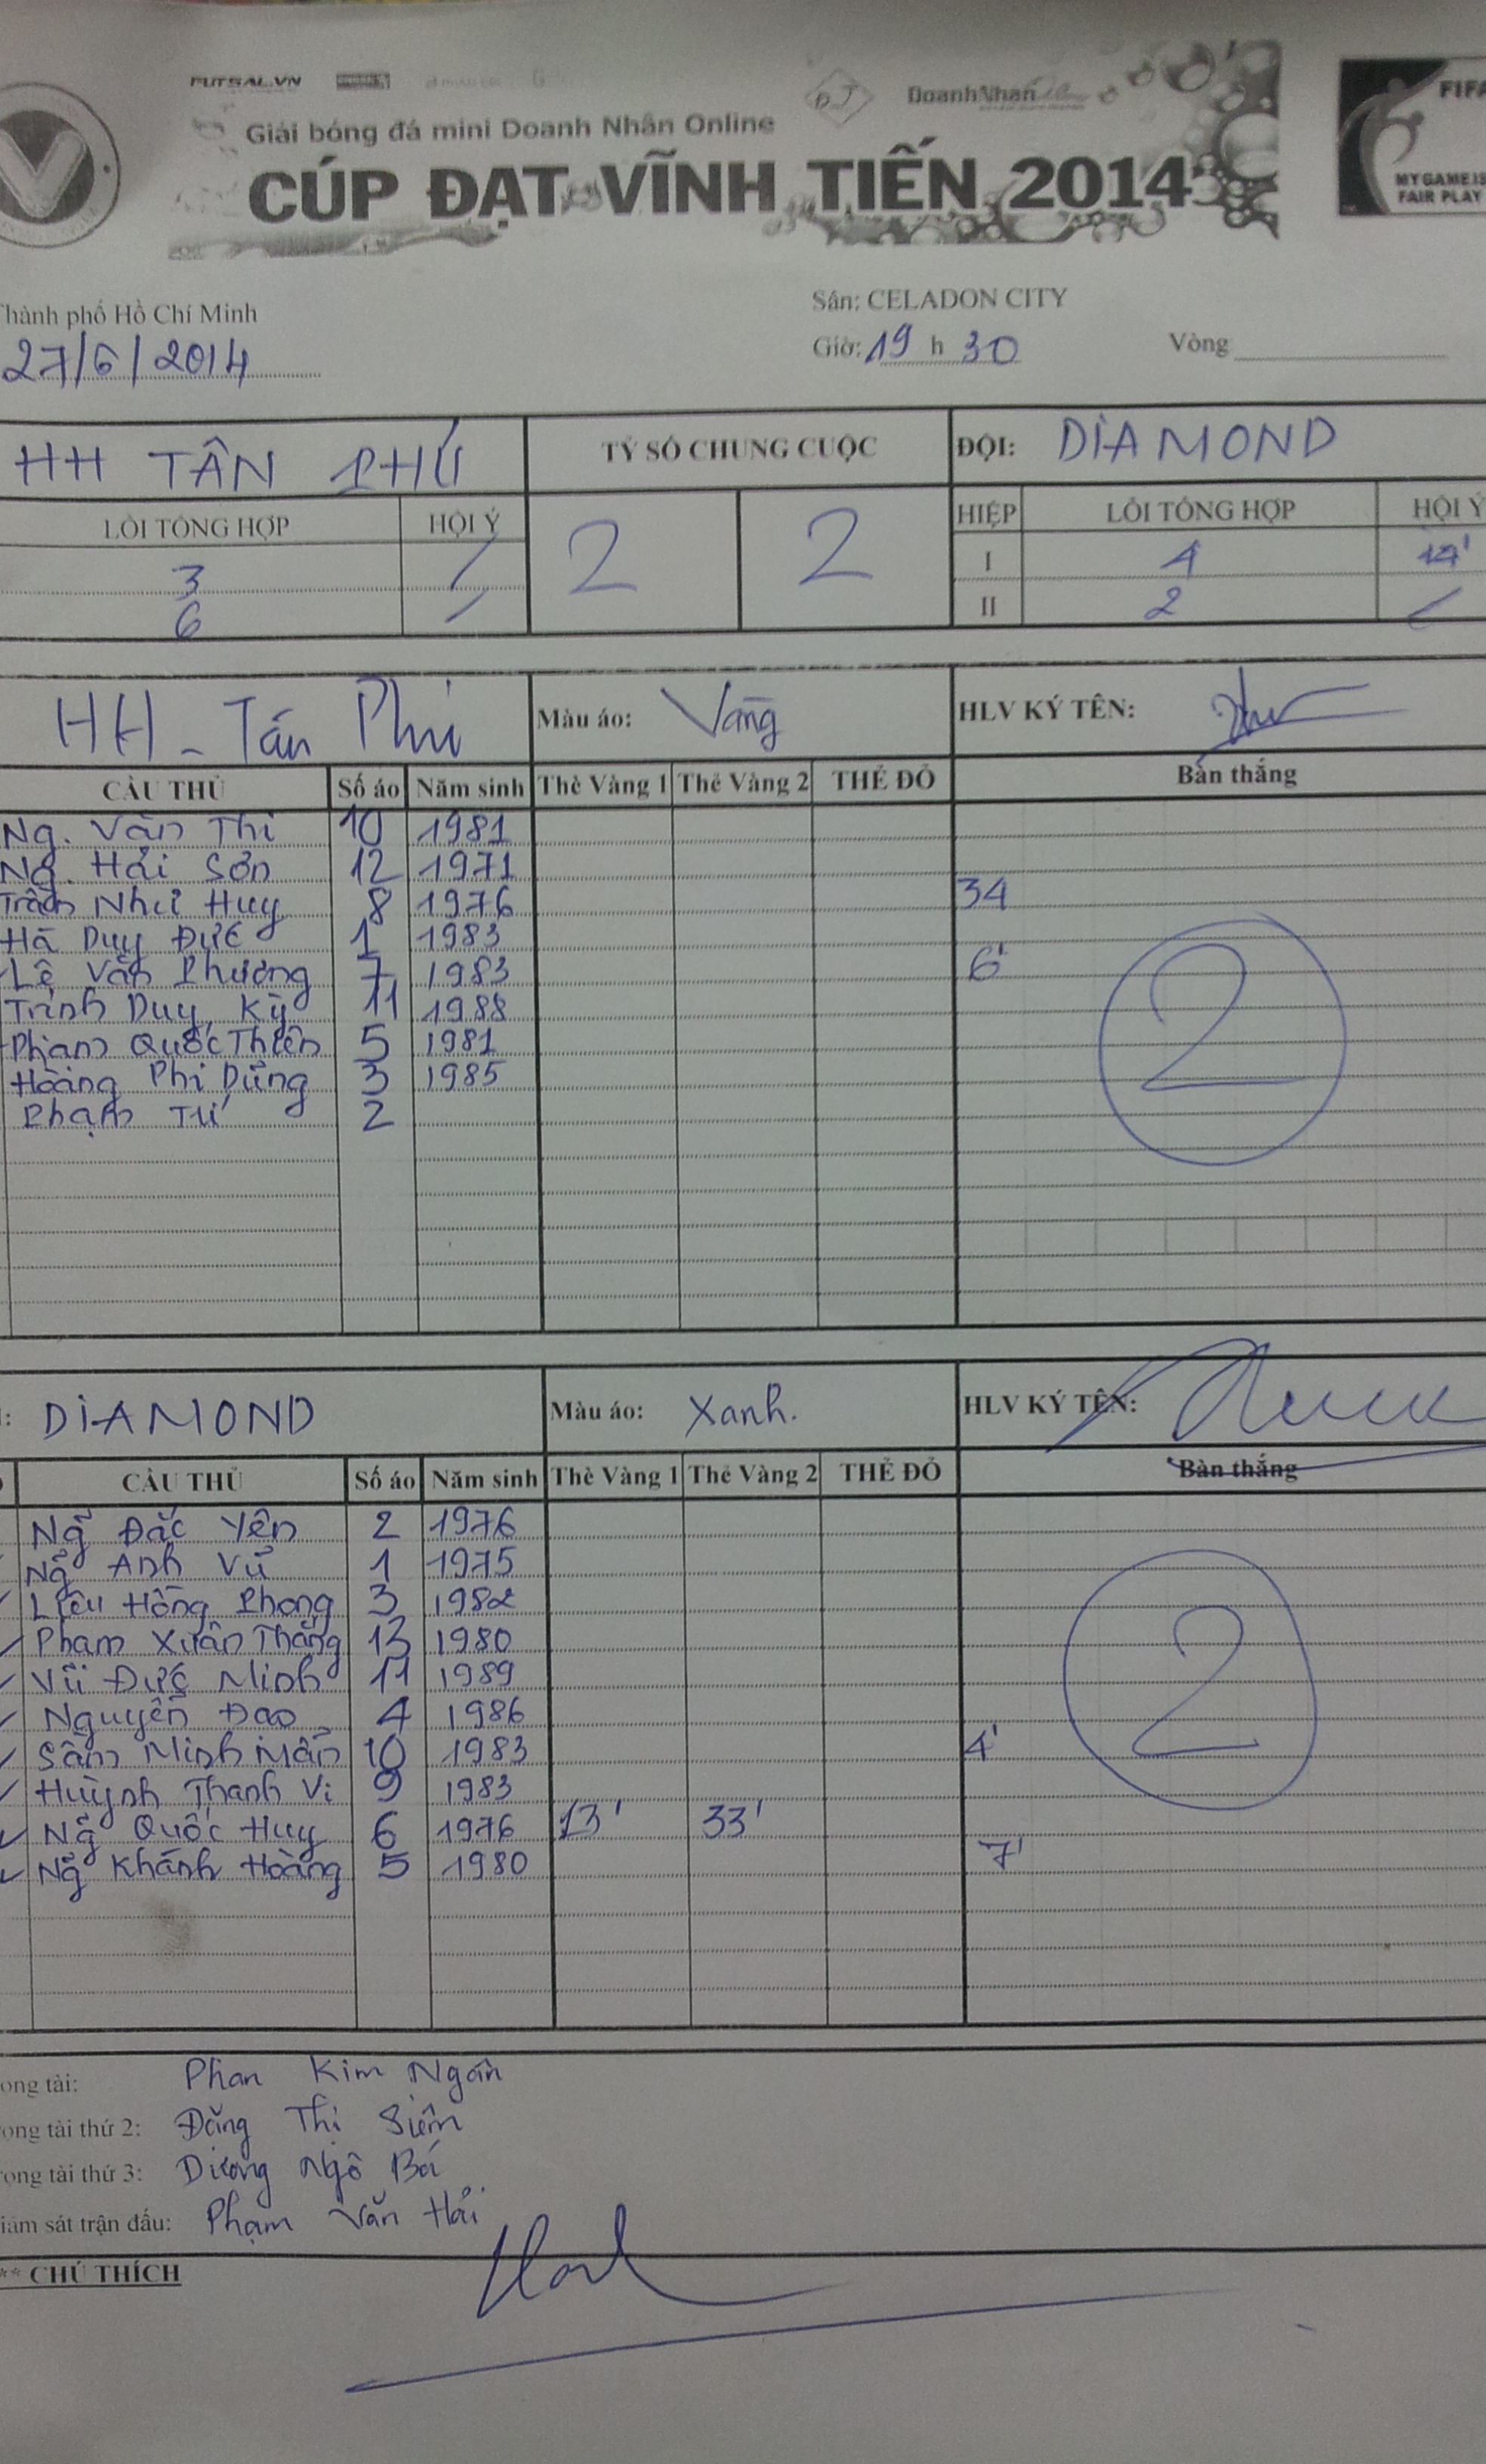 FUTSAL.VN DoanhNhan
Giải bóng đá mini Doanh Nhân Online
CÚP ĐẠT VĨNH TIẾN 2014
FIFA
MY GAME IS
FAIR PLAY
Thành phố Hồ Chí Minh Sân: CELADON CITY
27/6/2014 Giờ: 19 h 30 Vòng
HH TÂN PHÚ TỶ SỐ CHUNG CUỘC ĐỘI: DIAMOND
LỖI TỔNG HỢP HỘI Ý 2 2 HIỆP LỖI TỔNG HỢP HỘI Ý
3 / I 4
6 / II 2 /
HH - Tân Phú Màu áo: Vàng HLV KÝ TÊN:
CẦU THỦ Số áo Năm sinh Thẻ Vàng 1 Thẻ Vàng 2 THẺ ĐỎ Bàn thắng
Ng. Văn Thi 10 1981
Ng. Hải Sơn 12 1971
Trần Như Huy 8 1976 34
Hà Duy Đức 1 1983
Lê Văn Phương 7 1983 6'
Trịnh Duy Kỳ 11 1988
Phạm Quốc Thiên 5 1981
Hoàng Phi Dũng 3 1985
Phạm Tú 2
2
DIAMOND Màu áo: Xanh. HLV KÝ TÊN:
CẦU THỦ Số áo Năm sinh Thẻ Vàng 1 Thẻ Vàng 2 THẺ ĐỎ Bàn thắng
Ng̃ Đắc Yên 2 1976
Ng̃ Anh Vũ 1 1975
Liêu Hồng Phong 3 1982
Phạm Xuân Thắng 13 1980
Vũ Đức Minh 11 1989
Nguyễn Đạo 4 1986
Sầm Minh Mẫn 10 1983 4'
Huỳnh Thanh Vi 9 1983
Ng̃ Quốc Huy 6 1976 13' 33'
Ng̃ Khánh Hoàng 5 1980 7'
2
ọng tài: Phan Kim Ngân
ọng tài thứ 2: Đặng Thị
rọng tài thứ 3: Dương Ngô Bá
iám sát trận đấu: Phạm Văn Hải
** CHÚ THÍCH